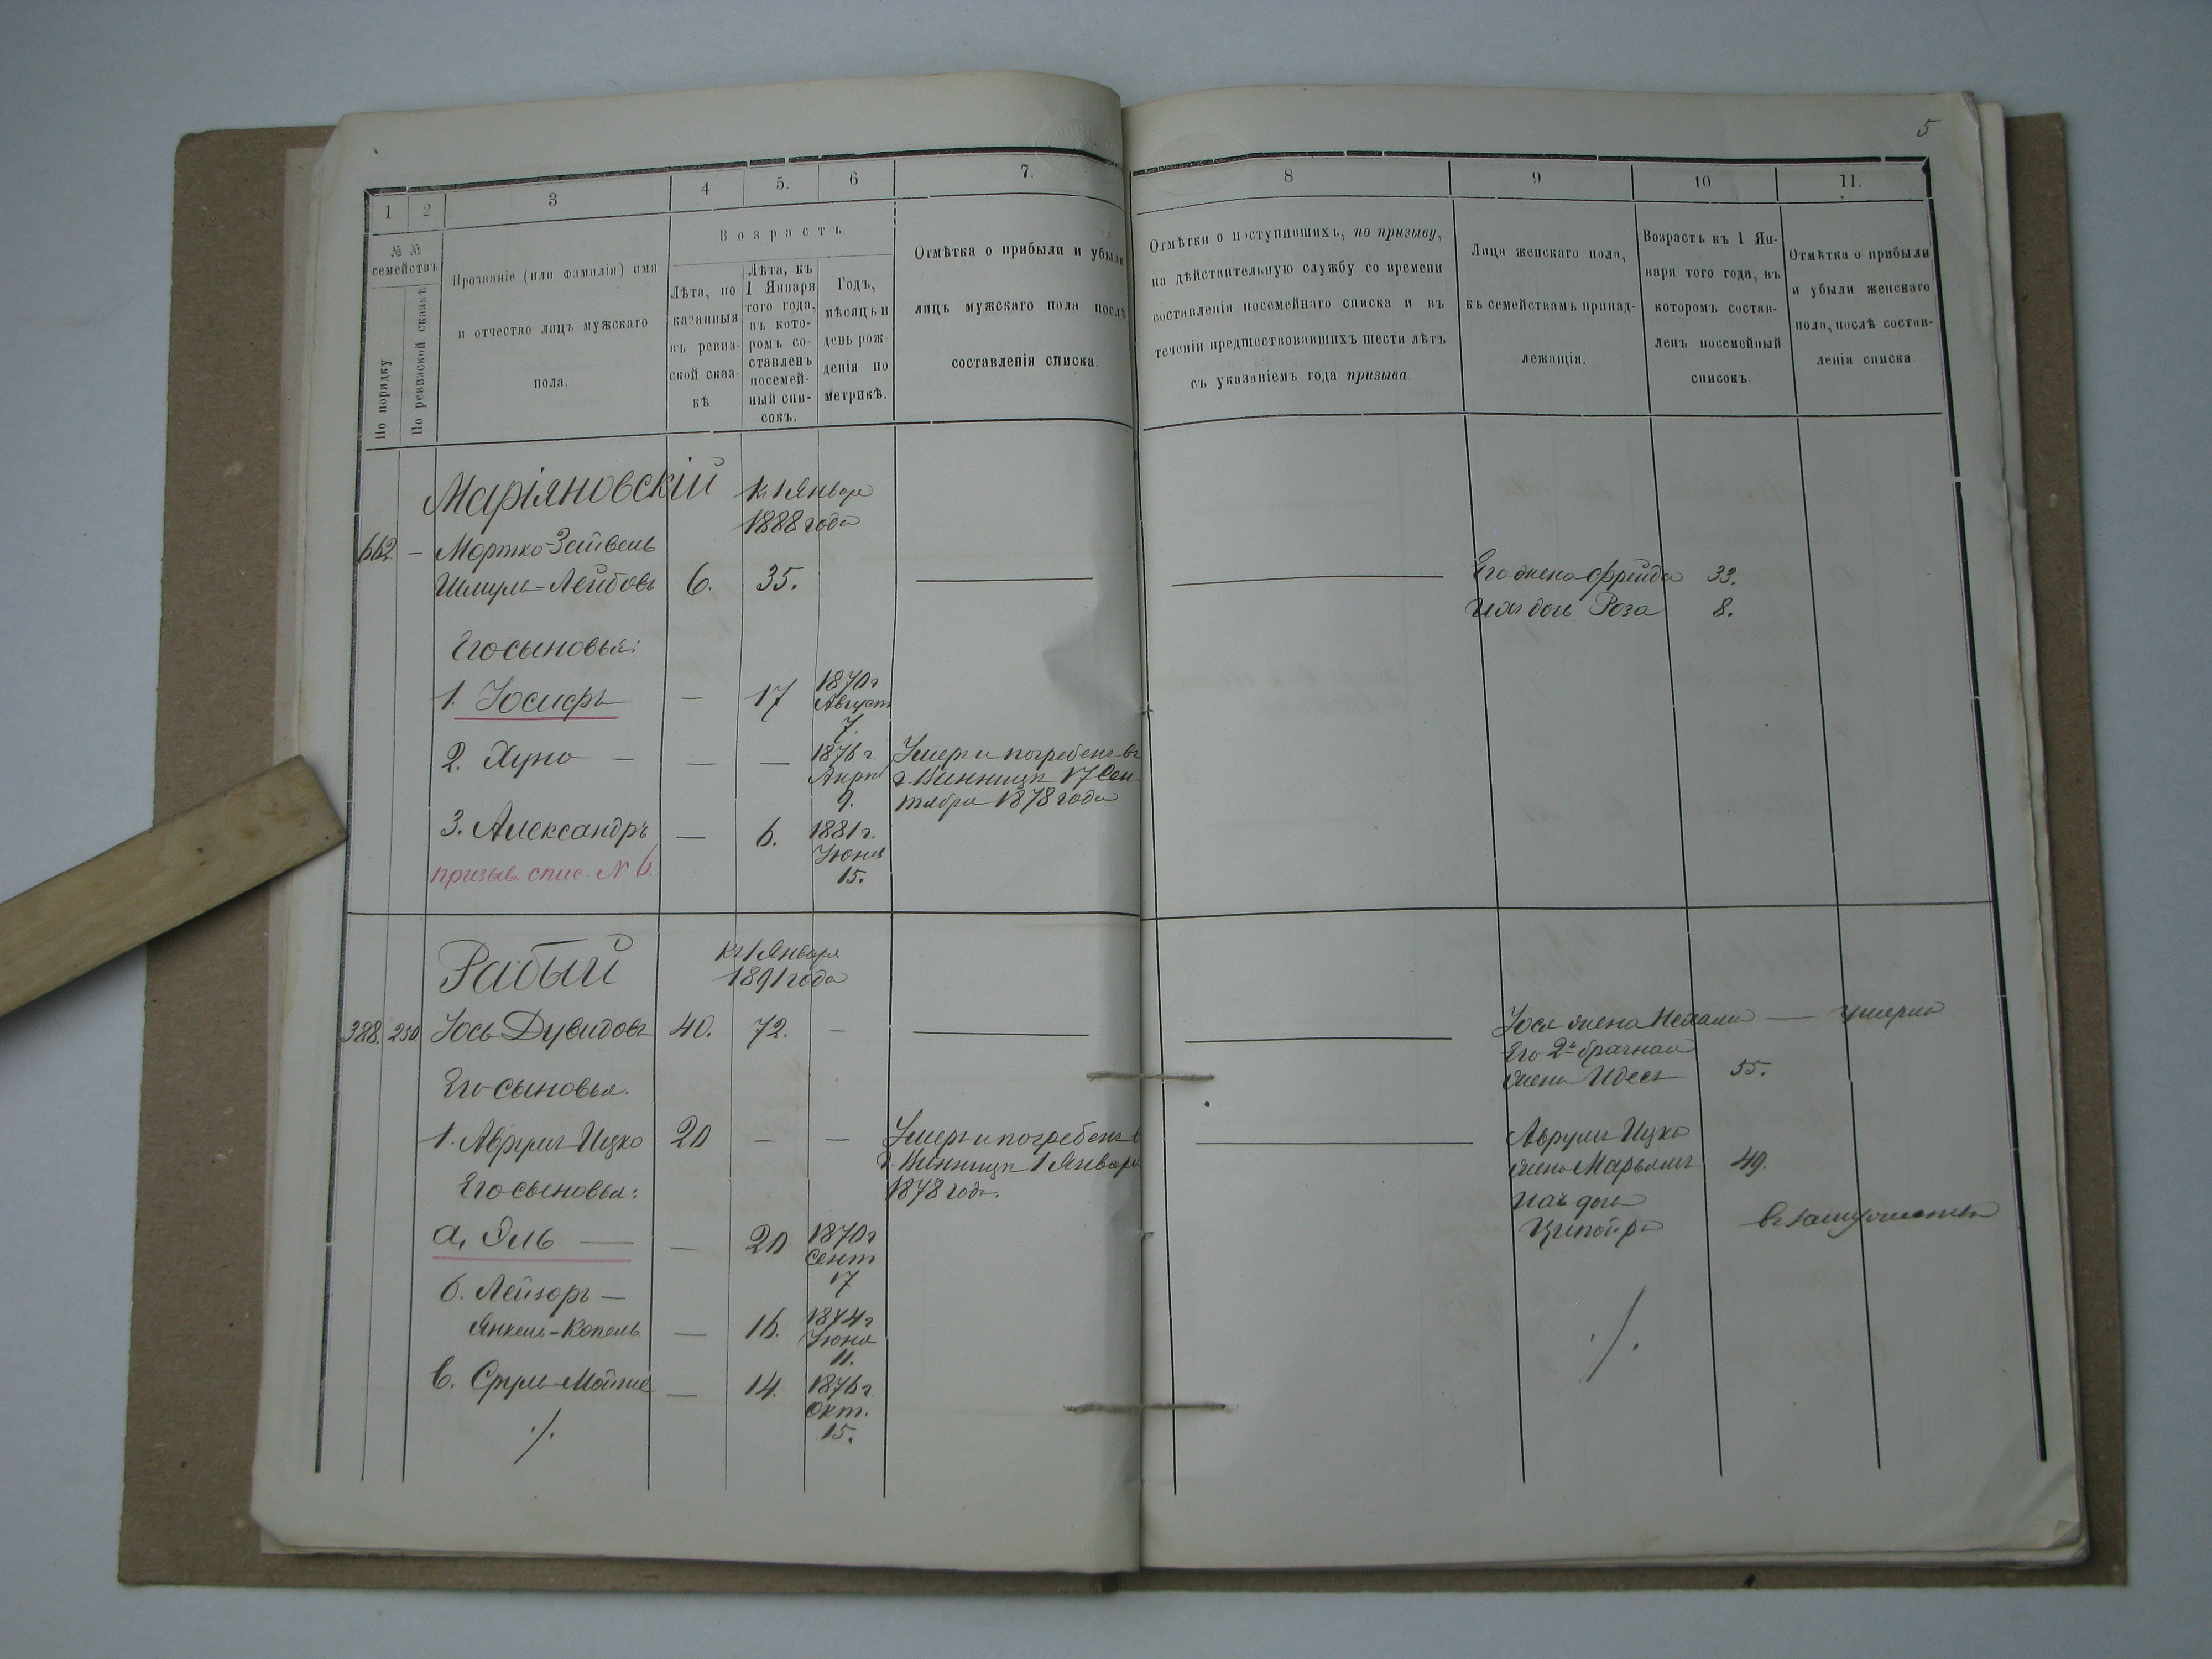 5
1 2 3 4 5. 6 7. 8 9 10 11.
№ №
семействъ
По порядку
По ревизской сказкѣ
Прозваніе (или фамилія) имя
и отчество лицъ мужскаго
пола.
Возрастъ.
Лѣта, по
казанныя
въ ревиз-
ской сказ-
кѣ
Лѣта, къ
1 Января
того года,
въ кото-
ромъ со-
ставленъ
посемей-
ный спи-
сокъ.
Годъ,
мѣсяцъ и
день рож
денія по
метрикѣ.
Отмѣтка о прибыли и убыли
лицъ мужскаго пола послѣ
составленія списка.
Отмѣтки о поступившихъ, по призыву,
на дѣйствительную службу со времени
составленія посемейнаго списка и въ
теченіи предшествовавшихъ шести лѣтъ
съ указаніемъ года призыва.
Лица женскаго пола,
къ семействамъ принад-
лежащія.
Возрастъ къ 1 Ян-
варя того года, въ
которомъ состав-
ленъ посемейный
списокъ.
Отмѣтка о прибыли
и убыли женскаго
пола, послѣ состав-
ленія списка.
Маріяновскій к 1 Января
1888 года
662. — Мортко-Зейвель
Шмуль-Лейбовъ 6. 35. — — Его жена Фрейда 33.
Ихъ дочь Роза 8.
Его сыновья:
1. Іосифъ — 17 1870 г
Август
7.
2. Хуно — — — 1876 г.
Апрѣл
9.
Умеръ и погребенъ въ
г. Винницѣ 17 Сен-
тября 1878 года
3. Александръ — 6. 1881 г.
Іюня
15.
призыв. спис. № 6.
Рабый къ 1 Января
1891 года
388. 250 Іось Дувидовъ 40. 72. — — — Іося жена Нехама — умерла
Его 2й брачная
жена Идесъ 55.
Его сыновья.
1. Аврумъ Ицко 20 — — Умеръ и погребенъ в
г. Винницѣ 1 Января
1878 года.
— Аврумъ Ицка
жена Марьямъ 49.
Ихъ дочь
Ципойра в замужествѣ
Его сыновья:
а, Эль — — 20 1870 г
Сент
17
б. Лейзоръ —
Янкель-Копель — 16. 1874 г
Іюня
11.
в. Сруль-Мойше — 14. 1876 г.
Окт.
15.
./. ./.